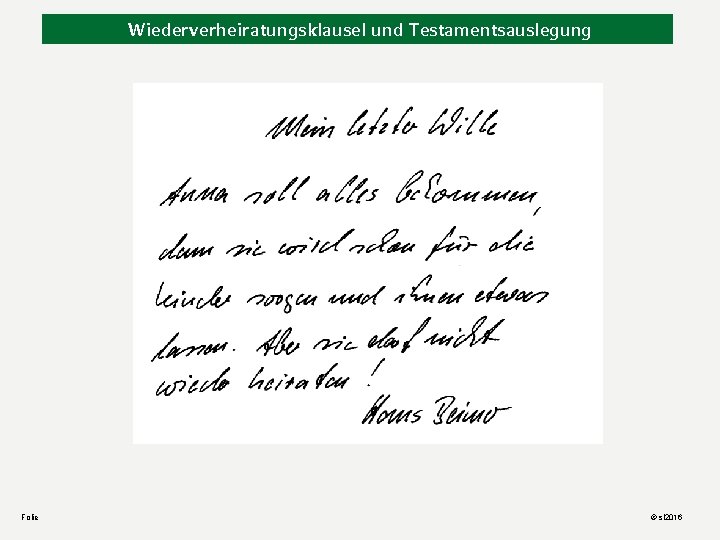 Wiederverheiratungsklausel und Testamentsauslegung
Mein letzter Wille
Anna soll alles bekommen,
denn sie wird schon für die
Kinder sorgen und ihnen etwas
lassen. Aber sie darf nicht
wieder heiraten!
Hans Beimer
Folie
© sl2016